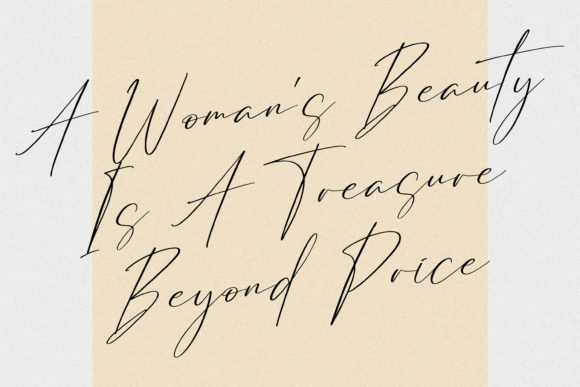 A Woman's Beauty
Is A Treasure
Beyond Price